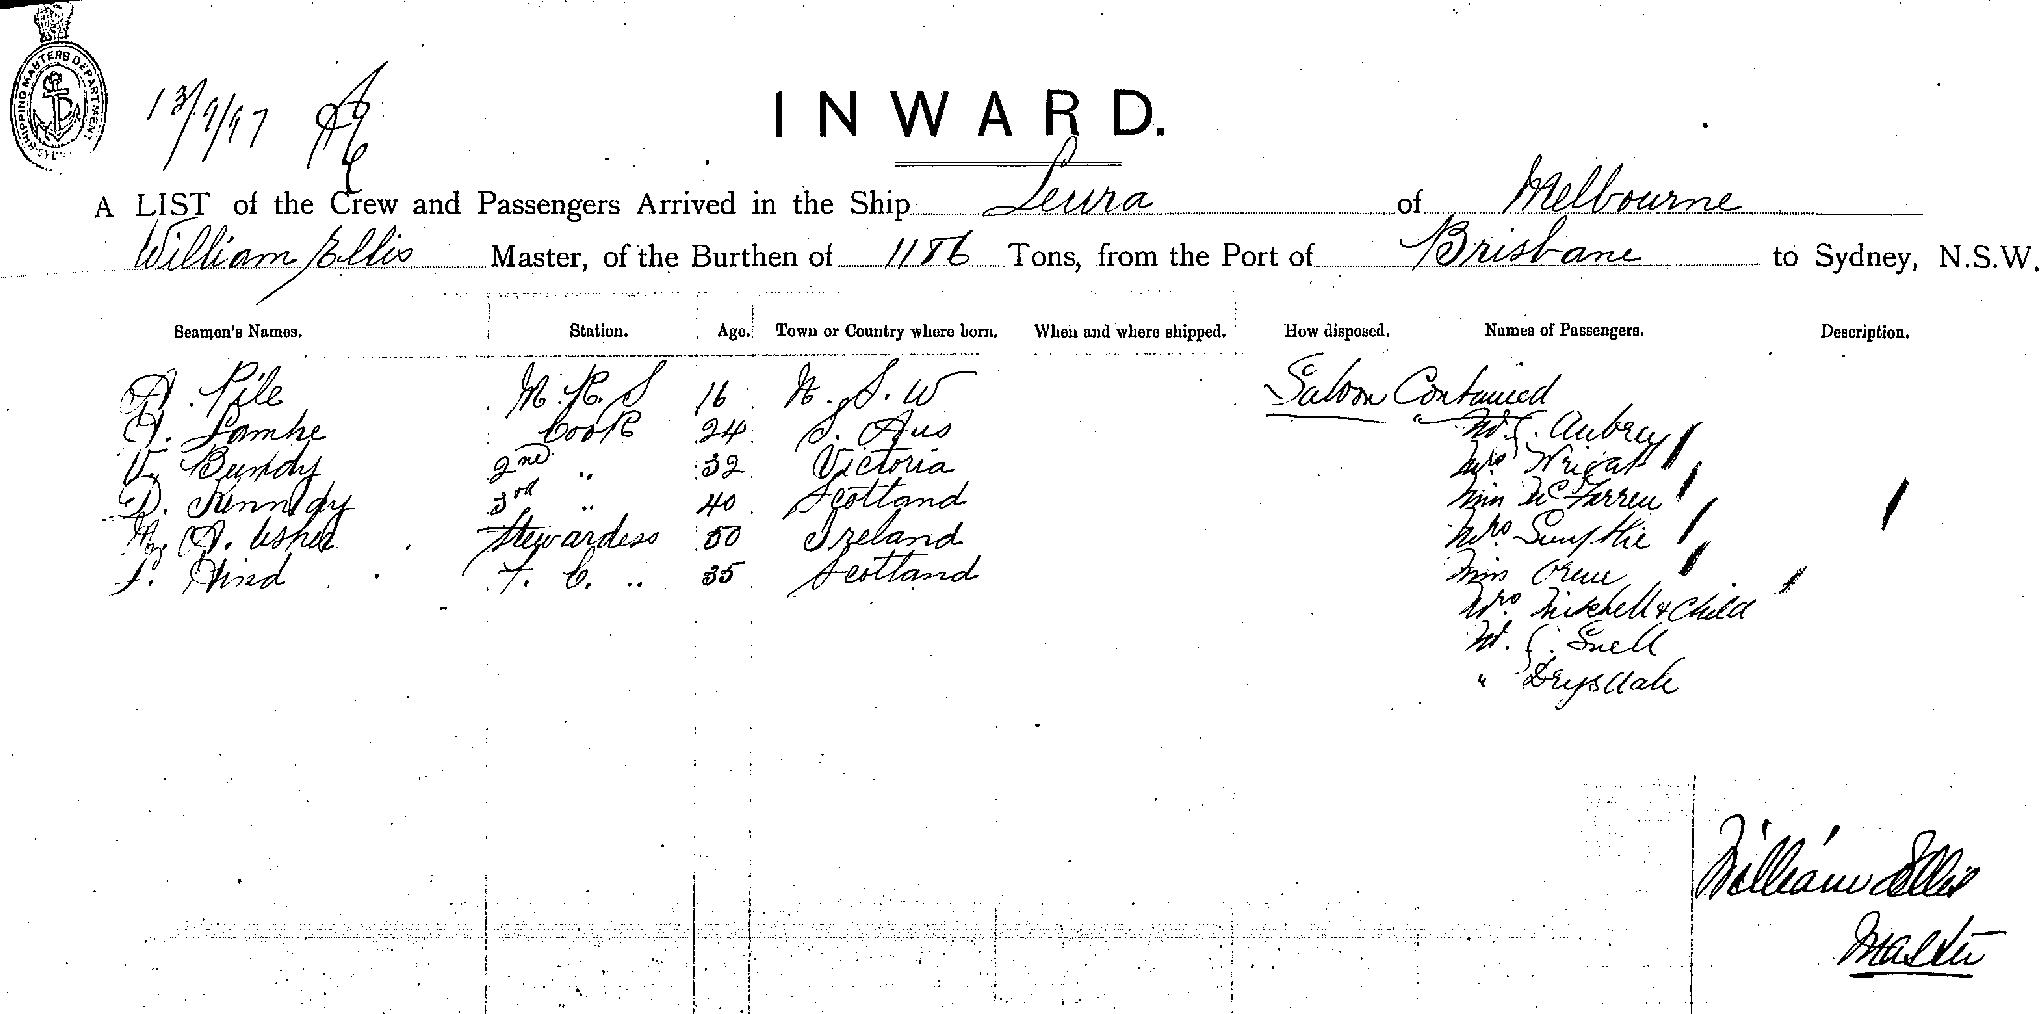 SHIPPING MASTERS DEPARTMENT
13/9/97
INWARD.
A LIST of the Crew and Passengers Arrived in the Ship Leura of Melbourne
William Ellis Master, of the Burthen of 1186 Tons, from the Port of Brisbane to Sydney, N.S.W.
Seamen's Names. Station. Age. Town or Country where born. When and where shipped. How disposed. Names of Passengers. Description.
A. Pile M. R. S 16 N. S. W Saloon Continued
Lamke Cook 24 S. Aus Mr. J. Aubrey
Bundy 2nd " 32 Victoria Mrs Wright
D. Kennedy 3rd " 40 Scotland Miss McFarren
A. Usher Stewardess 50 Ireland Mrs Smythie
Hind F. C. " 35 Scotland Miss
Mrs. Mitchell & Child
Mr. J. Snell
" Drysdale
William Ellis
Master